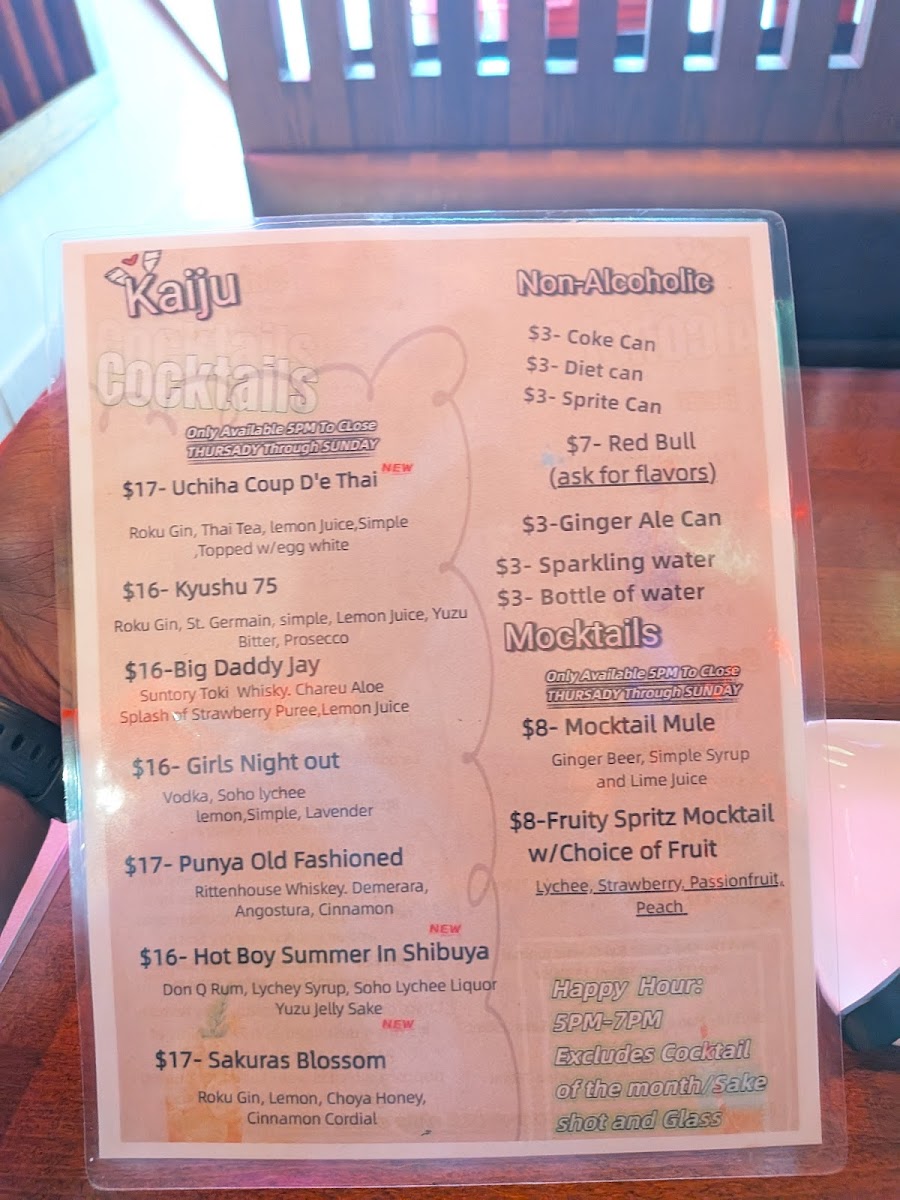 Kaiju
Cocktails
Only Available 5PM To CLose
THURSADY Through SUNDAY
$17- Uchiha Coup D'e Thai NEW
Roku Gin, Thai Tea, lemon Juice,Simple
,Topped w/egg white
$16- Kyushu 75
Roku Gin, St. Germain, simple, Lemon Juice, Yuzu
Bitter, Prosecco
$16-Big Daddy Jay
Suntory Toki Whisky. Chareu Aloe
Splash of Strawberry Puree,Lemon Juice
$16- Girls Night out
Vodka, Soho lychee
lemon,Simple, Lavender
$17- Punya Old Fashioned
Rittenhouse Whiskey. Demerara,
Angostura, Cinnamon
NEW
$16- Hot Boy Summer In Shibuya
Don Q Rum, Lychey Syrup, Soho Lychee Liquor
Yuzu Jelly Sake
NEW
$17- Sakuras Blossom
Roku Gin, Lemon, Choya Honey,
Cinnamon Cordial
Non-Alcoholic
$3- Coke Can
$3- Diet can
$3- Sprite Can
$7- Red Bull
(ask for flavors)
$3-Ginger Ale Can
$3- Sparkling water
$3- Bottle of water
Mocktails
Only Available 5PM To CLose
THURSADY Through SUNDAY
$8- Mocktail Mule
Ginger Beer, Simple Syrup
and Lime Juice
$8-Fruity Spritz Mocktail
w/Choice of Fruit
Lychee, Strawberry, Passionfruit,
Peach
Happy Hour:
5PM-7PM
Excludes Cocktail
of the month/Sake
shot and Glass